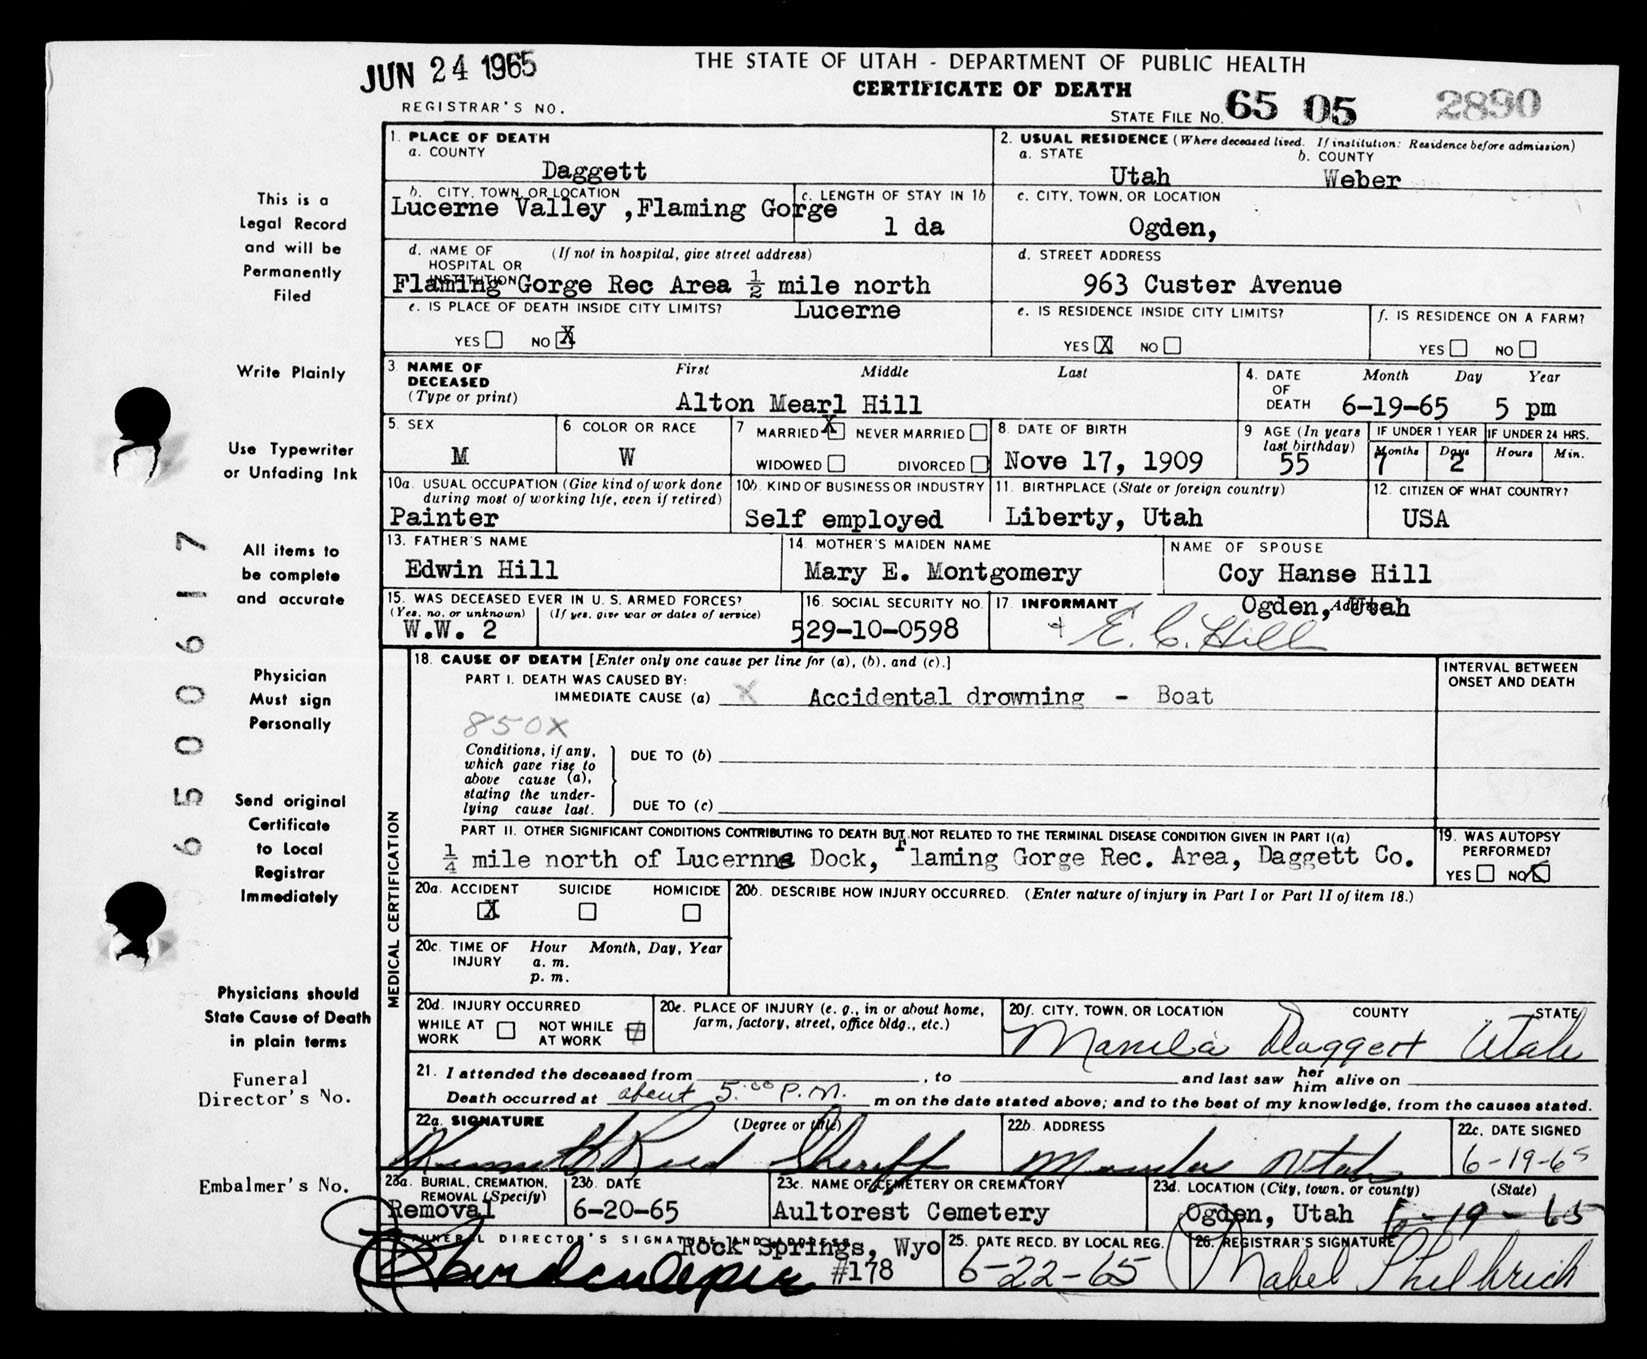 JUN 24 1965
THE STATE OF UTAH - DEPARTMENT OF PUBLIC HEALTH
CERTIFICATE OF DEATH
REGISTRAR'S NO.
STATE FILE NO. 65 05 2890
This is a
Legal Record
and will be
Permanently
Filed
Write Plainly
Use Typewriter
or Unfading Ink
All items to
be complete
and accurate
Physician
Must sign
Personally
Send original
Certificate
to Local
Registrar
Immediately
Physicians should
State Cause of Death
in plain terms
Funeral
Director's No.
Embalmer's No.
65000617
1. PLACE OF DEATH
a. COUNTY
Daggett
2. USUAL RESIDENCE (Where deceased lived. If institution: Residence before admission)
a. STATE b. COUNTY
Utah Weber
b. CITY, TOWN, OR LOCATION
Lucerne Valley ,Flaming Gorge
c. LENGTH OF STAY IN 1b
1 da
c. CITY, TOWN, OR LOCATION
Ogden,
d. NAME OF HOSPITAL OR INSTITUTION (If not in hospital, give street address)
Flaming Gorge Rec Area ½ mile north
Lucerne
d. STREET ADDRESS
963 Custer Avenue
e. IS PLACE OF DEATH INSIDE CITY LIMITS?
YES NO X
e. IS RESIDENCE INSIDE CITY LIMITS?
YES X NO
f. IS RESIDENCE ON A FARM?
YES NO
3 NAME OF DECEASED (Type or print)
First Middle Last
Alton Mearl Hill
4. DATE OF DEATH
Month Day Year
6-19-65 5 pm
5. SEX
M
6 COLOR OR RACE
W
7 MARRIED X NEVER MARRIED
WIDOWED DIVORCED
8. DATE OF BIRTH
Nove 17, 1909
9 AGE (In years last birthday)
55
IF UNDER 1 YEAR IF UNDER 24 HRS.
Months Days Hours Min.
7 2
10a. USUAL OCCUPATION (Give kind of work done during most of working life, even if retired)
Painter
10b. KIND OF BUSINESS OR INDUSTRY
Self employed
11. BIRTHPLACE (State or foreign country)
Liberty, Utah
12. CITIZEN OF WHAT COUNTRY?
USA
13. FATHER'S NAME
Edwin Hill
14. MOTHER'S MAIDEN NAME
Mary E. Montgomery
NAME OF SPOUSE
Coy Hanse Hill
15. WAS DECEASED EVER IN U.S. ARMED FORCES?
(Yes, no, or unknown) (If yes, give war or dates of service)
W.W. 2
16. SOCIAL SECURITY NO.
529-10-0598
17. INFORMANT Address
Ogden, Utah
E. C. Hill
MEDICAL CERTIFICATION
18. CAUSE OF DEATH [Enter only one cause per line for (a), (b), and (c).]
PART I. DEATH WAS CAUSED BY:
IMMEDIATE CAUSE (a) X Accidental drowning - Boat
850X
INTERVAL BETWEEN ONSET AND DEATH
Conditions, if any, which gave rise to above cause (a), stating the underlying cause last.
DUE TO (b)
DUE TO (c)
PART II. OTHER SIGNIFICANT CONDITIONS CONTRIBUTING TO DEATH BUT NOT RELATED TO THE TERMINAL DISEASE CONDITION GIVEN IN PART I(a)
¼ mile north of Lucernne Dock, Flaming Gorge Rec. Area, Daggett Co.
19. WAS AUTOPSY PERFORMED?
YES NO X
20a. ACCIDENT SUICIDE HOMICIDE
X
20b. DESCRIBE HOW INJURY OCCURRED. (Enter nature of injury in Part I or Part II of item 18.)
20c. TIME OF INJURY Hour Month, Day, Year
a. m.
p. m.
20d. INJURY OCCURRED
WHILE AT WORK NOT WHILE AT WORK
20e. PLACE OF INJURY (e. g., in or about home, farm, factory, street, office bldg., etc.)
20f. CITY, TOWN, OR LOCATION COUNTY STATE
Manila Daggett Utah
21. I attended the deceased from , to and last saw her him alive on
Death occurred at about 5:00 P.M. m on the date stated above; and to the best of my knowledge, from the causes stated.
22a. SIGNATURE (Degree or title)
Kenneth Reed Sheriff
22b. ADDRESS
Manila Utah
22c. DATE SIGNED
6-19-65
23a. BURIAL, CREMATION, REMOVAL (Specify)
Removal
23b. DATE
6-20-65
23c. NAME OF CEMETERY OR CREMATORY
Aultorest Cemetery
23d. LOCATION (City, town, or county) (State)
Ogden, Utah 6-19-65
FUNERAL DIRECTOR'S SIGNATURE AND ADDRESS
Rock Springs, Wyo
#178
25. DATE RECD. BY LOCAL REG.
6-22-65
26. REGISTRAR'S SIGNATURE
Mabel Philbrick